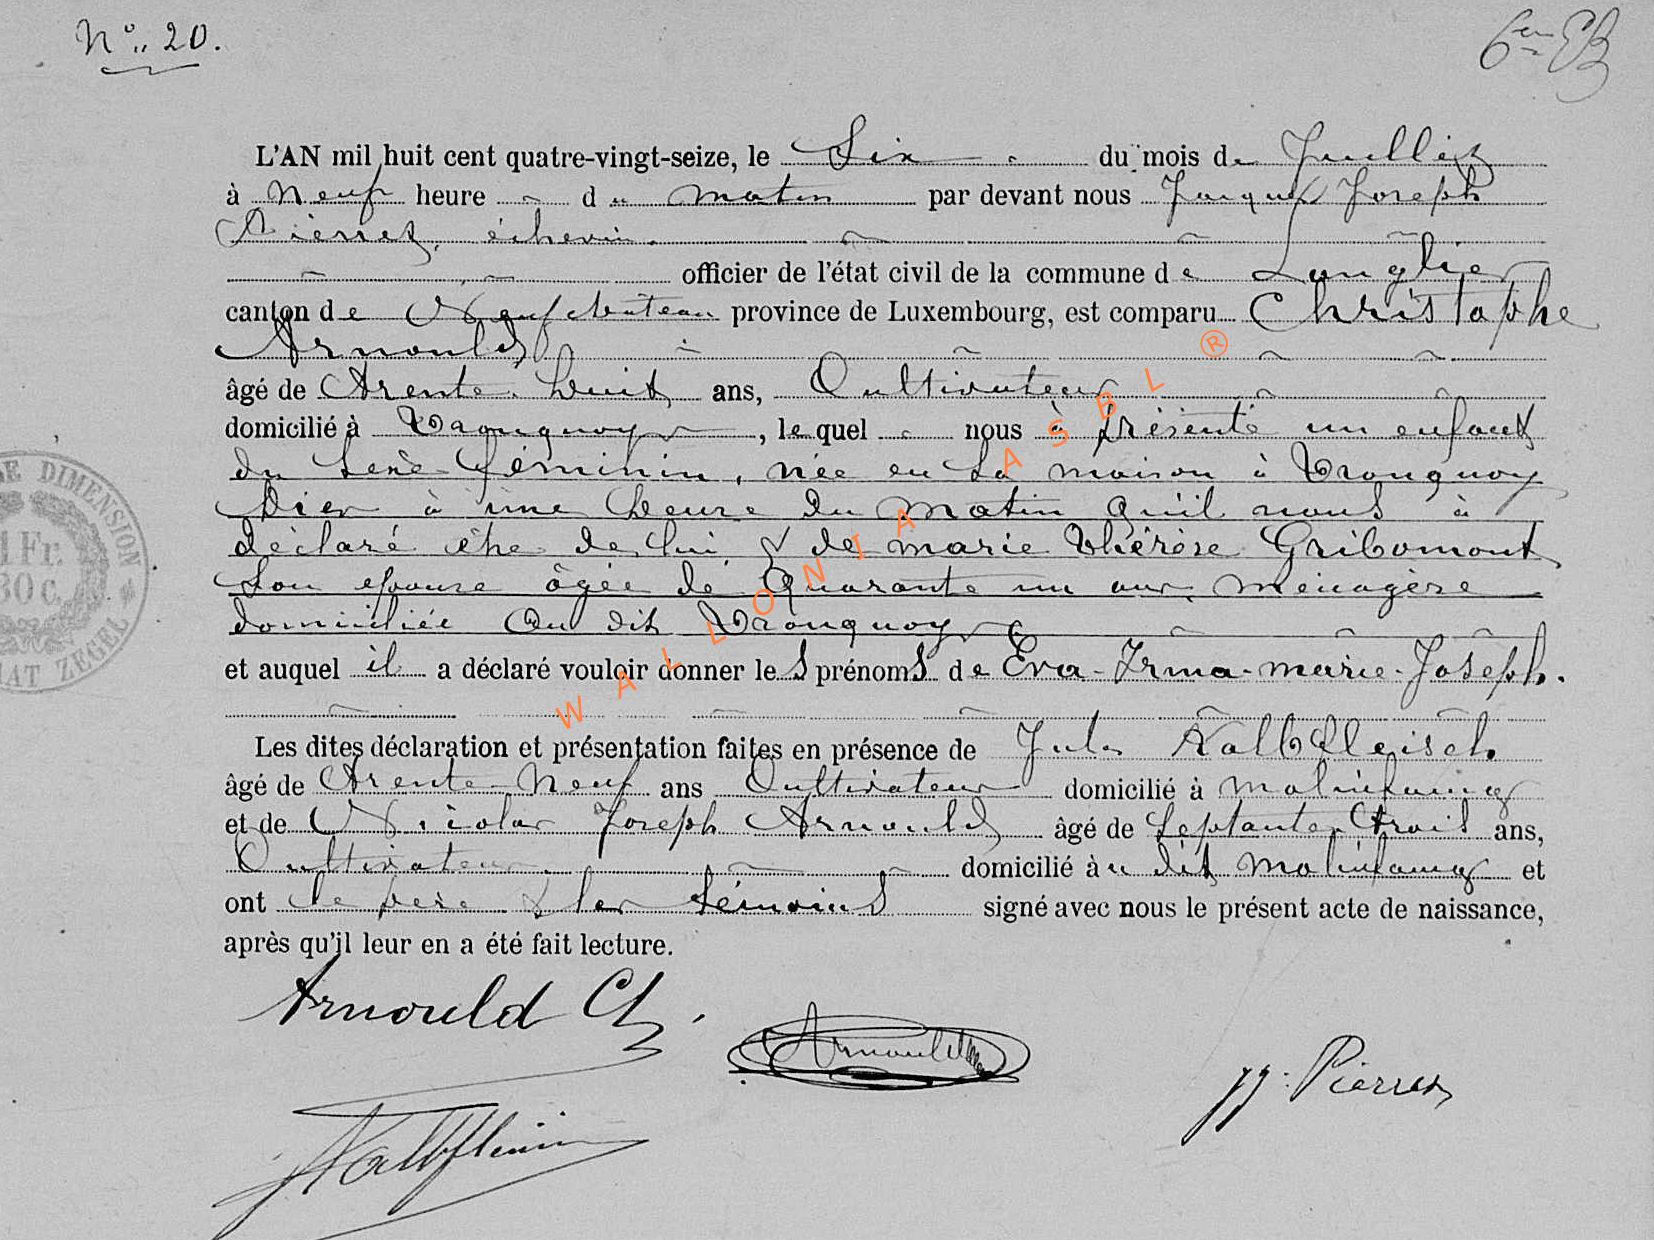 N° 20.
6em EB
L'AN mil huit cent quatre-vingt-seize, le Six du mois de Juillet
à Neuf heure du matin par devant nous Jacques Joseph
Pierret, échevin.
officier de l'état civil de la commune de Longlier
canton de Neufchâteau province de Luxembourg, est comparu Christophe
Arnould
âgé de trente huit ans, Cultivateur
domicilié à Tronquoy, lequel nous à présenté un enfant
du sexe féminin, née en sa maison à Tronquoy
hier à une heure du matin qu'il nous à
déclaré être de lui & de marie Thérèse Gribomont
son épouse âgée de Quarante un ans, ménagère
domiciliée au dit Tronquoy
et auquel il a déclaré vouloir donner les prénoms de Eva-Irma-marie-Joseph.
Les dites déclaration et présentation faites en présence de Jules Kalbfleisch
âgé de trente Neuf ans Cultivateur domicilié à molinfaing
et de Nicolas Joseph Arnould âgé de Septante trois ans,
Cultivateur domicilié au dit molinfaing et
ont le père & les témoins signé avec nous le présent acte de naissance,
après qu'il leur en a été fait lecture.
Arnould Ch.
Arnould
JJ. Pierret
Kalbfleisch
DE DIMENSION
1 Fr.
30 c.
ZEGEL
WALLONIA ASBL ®